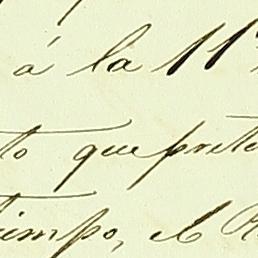 á la 11
to que prete
tiempo, el